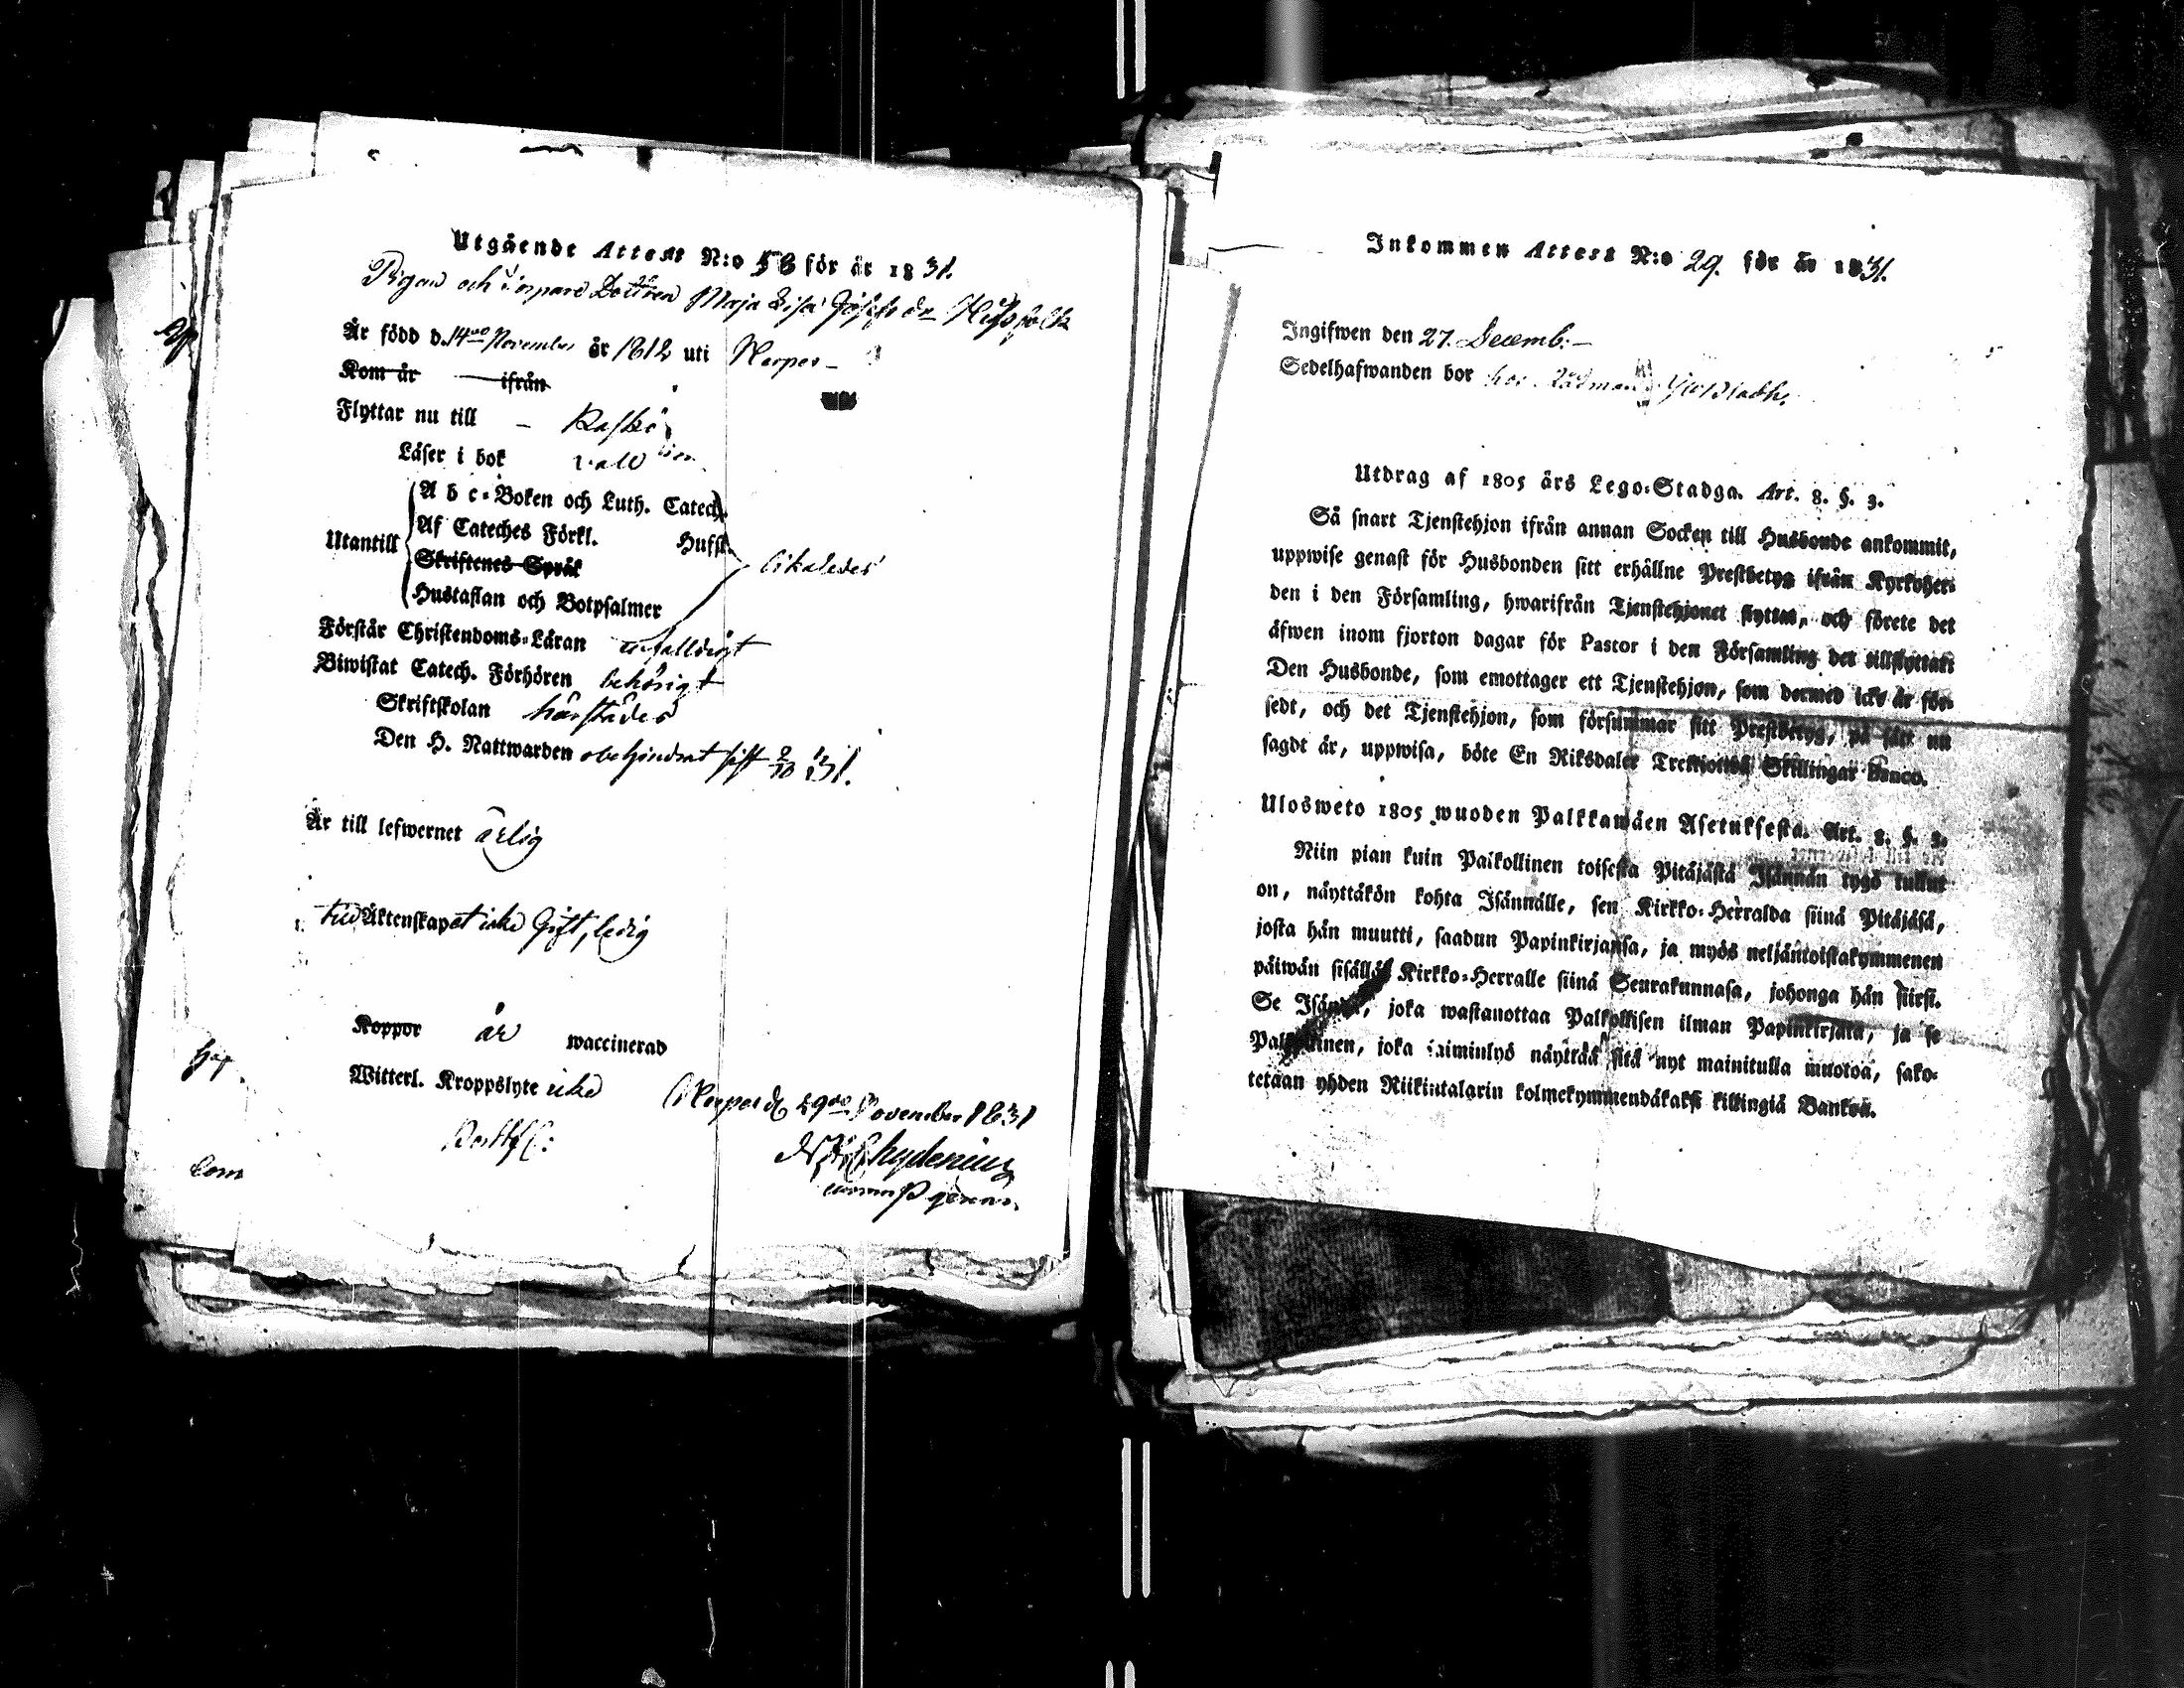 Utgående Attest N:o 58 för år 1831.
Pigan och Dottren Maja Lisa
Är född d. 14de November år 1812 uti Nerpes
Kom år — ifrån
Flyttar nu till – Kaskö
Läser i bok väl
Utantill
A b c-Boken och Luth. Catech.
Af Cateches Förkl. Husfl.
Skriftenes Språk
Hustaflan och Botpsalmer
likaledes
Förstår Christendoms-Läran enfalldigt
Biwistat Catech. Förhören behörigt
Skriftskolan härstädes
Den H. Nattwarden obehindrat sist 2/10 31.
Är till lefwernet ärlig
till Äktenskapet icke Gift, ledig
Koppor är waccinerad
Witterl. Kroppslyte icke
Nerpes d. 29de November 1831
Chydenius
Inkommen Attest N:o 29. för år 1831.
Ingifwen den 27. Decemb:–
Sedelhafwanden bor hos Rådman
Utdrag af 1805 års Lego-Stadga. Art. 8. §. 3.
Så snart Tjenstehjon ifrån annan Socken till Husbonde ankommit,
uppwise genast för Husbonden sitt erhållne Prestbetyg ifrån Kyrkoher-
den i den Församling, hwarifrån Tjenstehjonet flyttas, och förete det
äfwen inom fjorton dagar för Pastor i den Församling det tillflyttat.
Den Husbonde, som emottager ett Tjenstehjon, som dermed icke är för-
sedt, och det Tjenstehjon, som försummar sitt Prestbetyg, på sätt nu
sagdt är, uppwisa, böte En Riksdaler Trettjotwå Skillingar Banco.
Ulosweto 1805 wuoden Palkkawäen Asetuksesta. Art. 8. §. 3.
Niin pian kuin Palkollinen toisesta Pitäjästä Isännän tygö tullut
on, näyttäkön kohta Isännälle, sen Kirkko-Herralda siinä Pitäjäsä,
josta hän muutti, saadun Papinkirjansa, ja myös neljäntoistakymmenen
päiwän sisällä Kirkko-Herralle siinä Seurakunnasa, johonga hän siirsi.
Se Isändä, joka wastanottaa Palkollisen ilman Papinkirjata, ja se
Palkollinen, joka laiminlyö näyttää sitä nyt mainitulla muotoa, sako-
tetaan yhden Riikintalarin kolmekymmendäkaksi killingiä Bankoa.